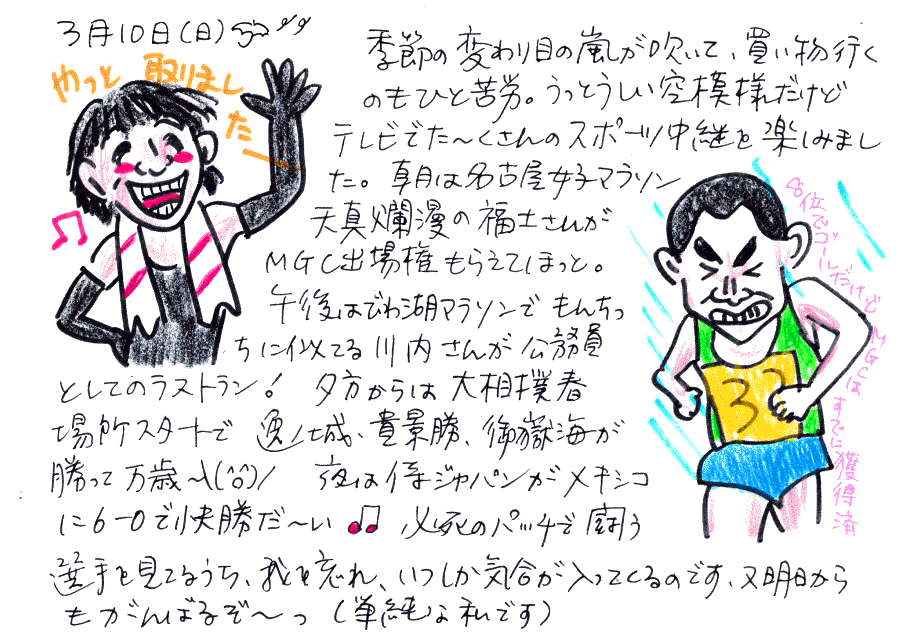 3月10日(日)
やっと 取りまし
たー
季節の変わり目の嵐が吹いて、買い物行く
のもひと苦労。うっとうしい空模様だけど
テレビでた〜くさんのスポーツ中継を楽しみまし
た。朝は名古屋女子マラソン
天真爛漫の福士さんが
MGC出場権もらえてほっと。
午後はびわ湖マラソンで もんちっ
ちに似てる川内さんが公務員
としてのラストラン! 夕方からは大相撲春
場所スタートで 逸ノ城、貴景勝、御嶽海が
勝って万歳〜\(^o^)/ 夜は侍ジャパンがメキシコ
に6-0で快勝だ〜い ♫ 必死のパッチで闘う
選手を見てるうち、我を忘れ、いつしか気合が入ってくるのです、又明日から
もがんばるぞ〜っ (単純な私です)
8位でゴールだけど MGCはすでに獲得済
32